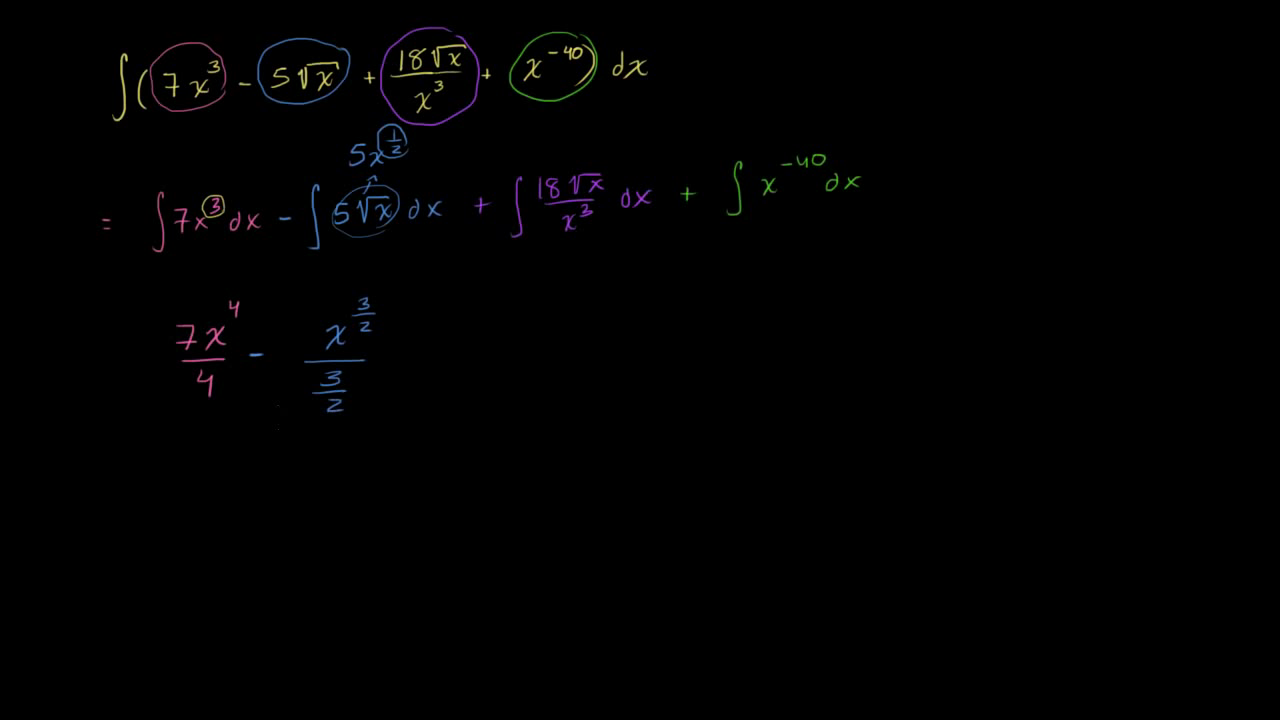 ∫(7x³ - 5√x + 18√x/x³ + x⁻⁴⁰) dx
5x^(1/2)
= ∫7x³ dx - ∫5√x dx + ∫18√x/x³ dx + ∫x⁻⁴⁰ dx
7x⁴/4 - x^(3/2)/(3/2)